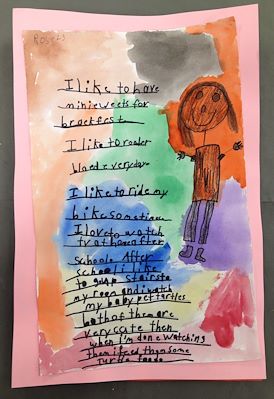 I like to have
miniweets for
brackfest
I like to roder
blead everydaye
I like to ride my
bike sometimes
I love to watch
tv at home after
schoole After
school i like
to go up stairs to
my room and watch
my baby pet turtles
both of them are
very cute then
when i'm done watching
them i feed them some
turtle foode